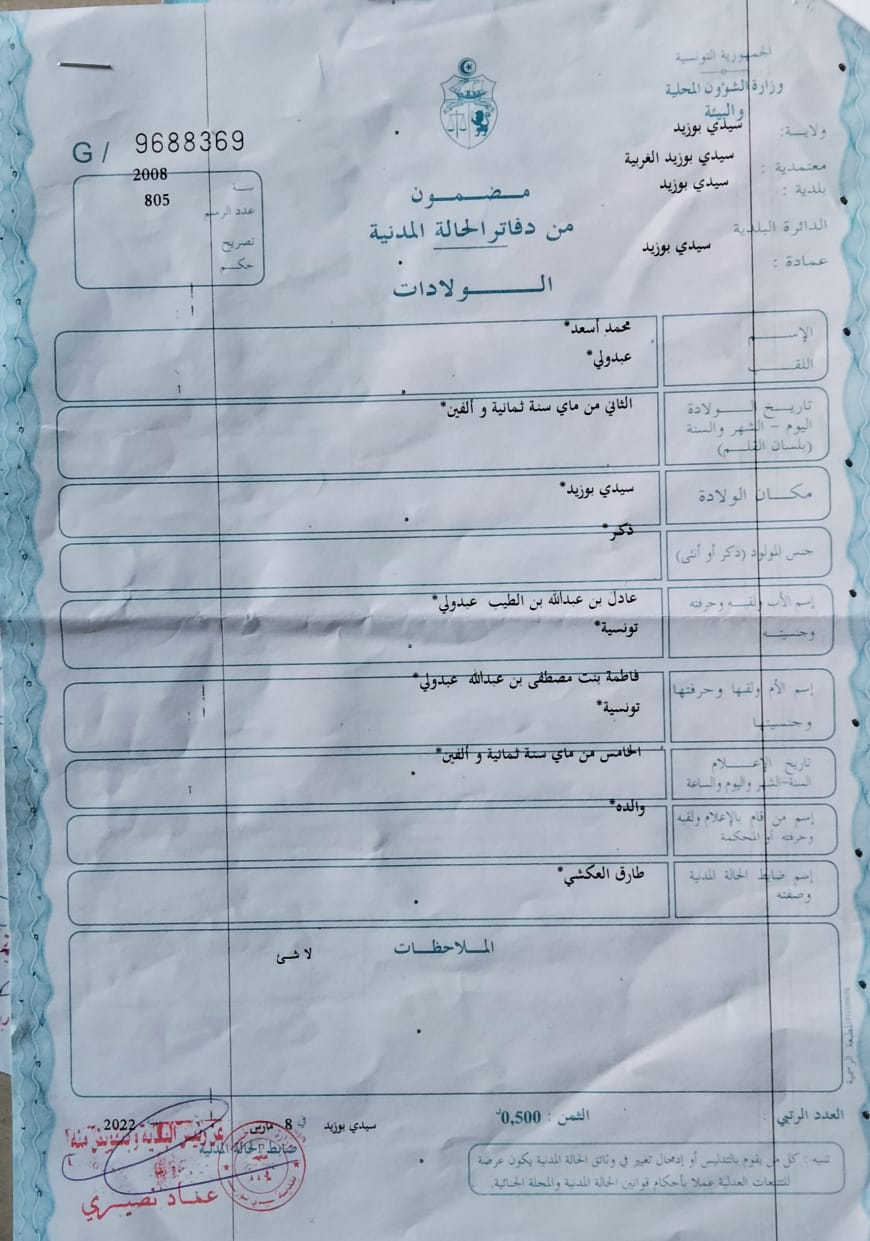 الجمهورية التونسية
وزارة الشؤون المحلية
والبيئة
ولاية: سيدي بوزيد
معتمدية : سيدي بوزيد الغربية
بلدية : سيدي بوزيد
الدائرة البلدية
عمادة : سيدي بوزيد
G / 9688369
سنة 2008
عدد الرسم 805
تصريح
حكم
مضمون
من دفاتر الحالة المدنية
الولادات
الإسم محمد أسعد*
اللقب عبدولي*
تاريخ الولادة الثاني من ماي سنة ثمانية و ألفين*
اليوم - الشهر والسنة
(بلسان القلم)
مكان الولادة سيدي بوزيد*
جنس المولود (ذكر أو أنثى) ذكر*
إسم الأب ولقبه وحرفته عادل بن عبدالله بن الطيب عبدولي*
وجنسيته تونسية*
إسم الأم ولقبها وحرفتها فاطمة بنت مصطفى بن عبدالله عبدولي*
وجنسيتها تونسية*
تاريخ الإعلام الخامس من ماي سنة ثمانية و ألفين*
السنة-الشهر واليوم والساعة
إسم من قام بالإعلام ولقبه والده*
وحرفته أو المحكمة
إسم ضابط الحالة المدنية طارق العكشي*
وصفته
الملاحظات
لا شئ
العدد الرتبي : الثمن : 0,500د
سيدي بوزيد في 8 مارس 2022
ضابط الحالة المدنية
عن رئيس البلدية وبتفويض منه
عماد نصيري
تنبيه : كل من يقوم بالتدليس أو إدخال تغيير في وثائق الحالة المدنية يكون عرضة
للتتبعات العدلية عملا بأحكام قوانين الحالة المدنية والمجلة الجنائية.